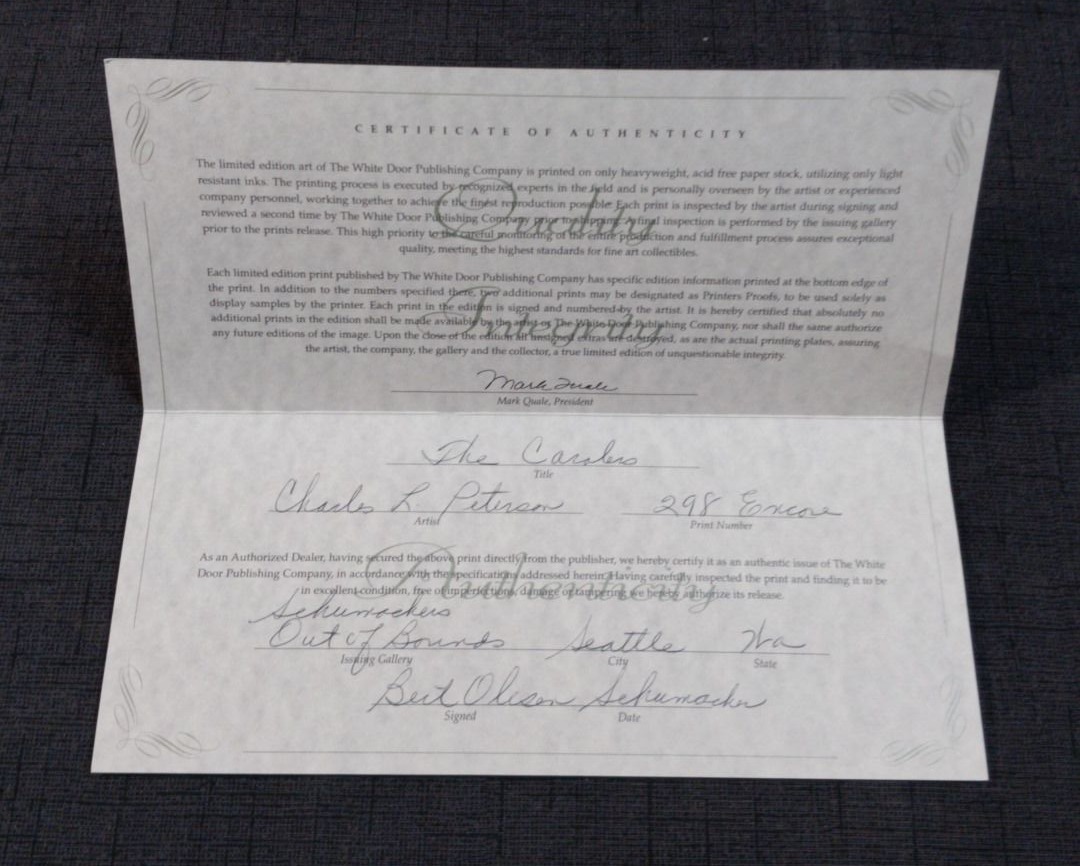 CERTIFICATE OF AUTHENTICITY
The limited edition art of The White Door Publishing Company is printed on only heavyweight, acid free paper stock, utilizing only light
resistant inks. The printing process is executed by recognized experts in the field and is personally overseen by the artist or experienced
company personnel, working together to achieve the finest reproduction possible. Each print is inspected by the artist during signing and
reviewed a second time by The White Door Publishing Company prior to shipping. A final inspection is performed by the issuing gallery
prior to the prints release. This high priority to the careful monitoring of the entire production and fulfillment process assures exceptional
quality, meeting the highest standards for fine art collectibles.
Quality
Each limited edition print published by The White Door Publishing Company has specific edition information printed at the bottom edge of
the print. In addition to the numbers specified there, two additional prints may be designated as Printers Proofs, to be used solely as
display samples by the printer. Each print in the edition is signed and numbered by the artist. It is hereby certified that absolutely no
additional prints in the edition shall be made available by the artist or The White Door Publishing Company, nor shall the same authorize
any future editions of the image. Upon the close of the edition all unsigned extras are destroyed, as are the actual printing plates, assuring
the artist, the company, the gallery and the collector, a true limited edition of unquestionable integrity.
Integrity
Mark Quale
Mark Quale, President
The Carolers
Title
Charles L. Peterson 298 Encore
Artist Print Number
As an Authorized Dealer, having secured the above print directly from the publisher, we hereby certify it as an authentic issue of The White
Door Publishing Company, in accordance with the specifications addressed herein. Having carefully inspected the print and finding it to be
in excellent condition, free of imperfections, damage or tampering we hereby authorize its release.
Authenticity
Schumachers
Out of Bounds Seattle Wa
Issuing Gallery City State
Olesen Schumacher
Signed Date